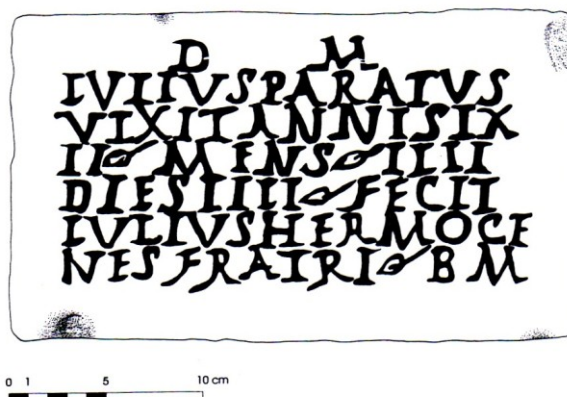 D M
IVLIVSPARATVS
VIXITANNISIX
II MENS IIII
DIESIIII FECIT
IVLIVSHERMOCE
NES FRATRI B M
0 1 5 10 cm